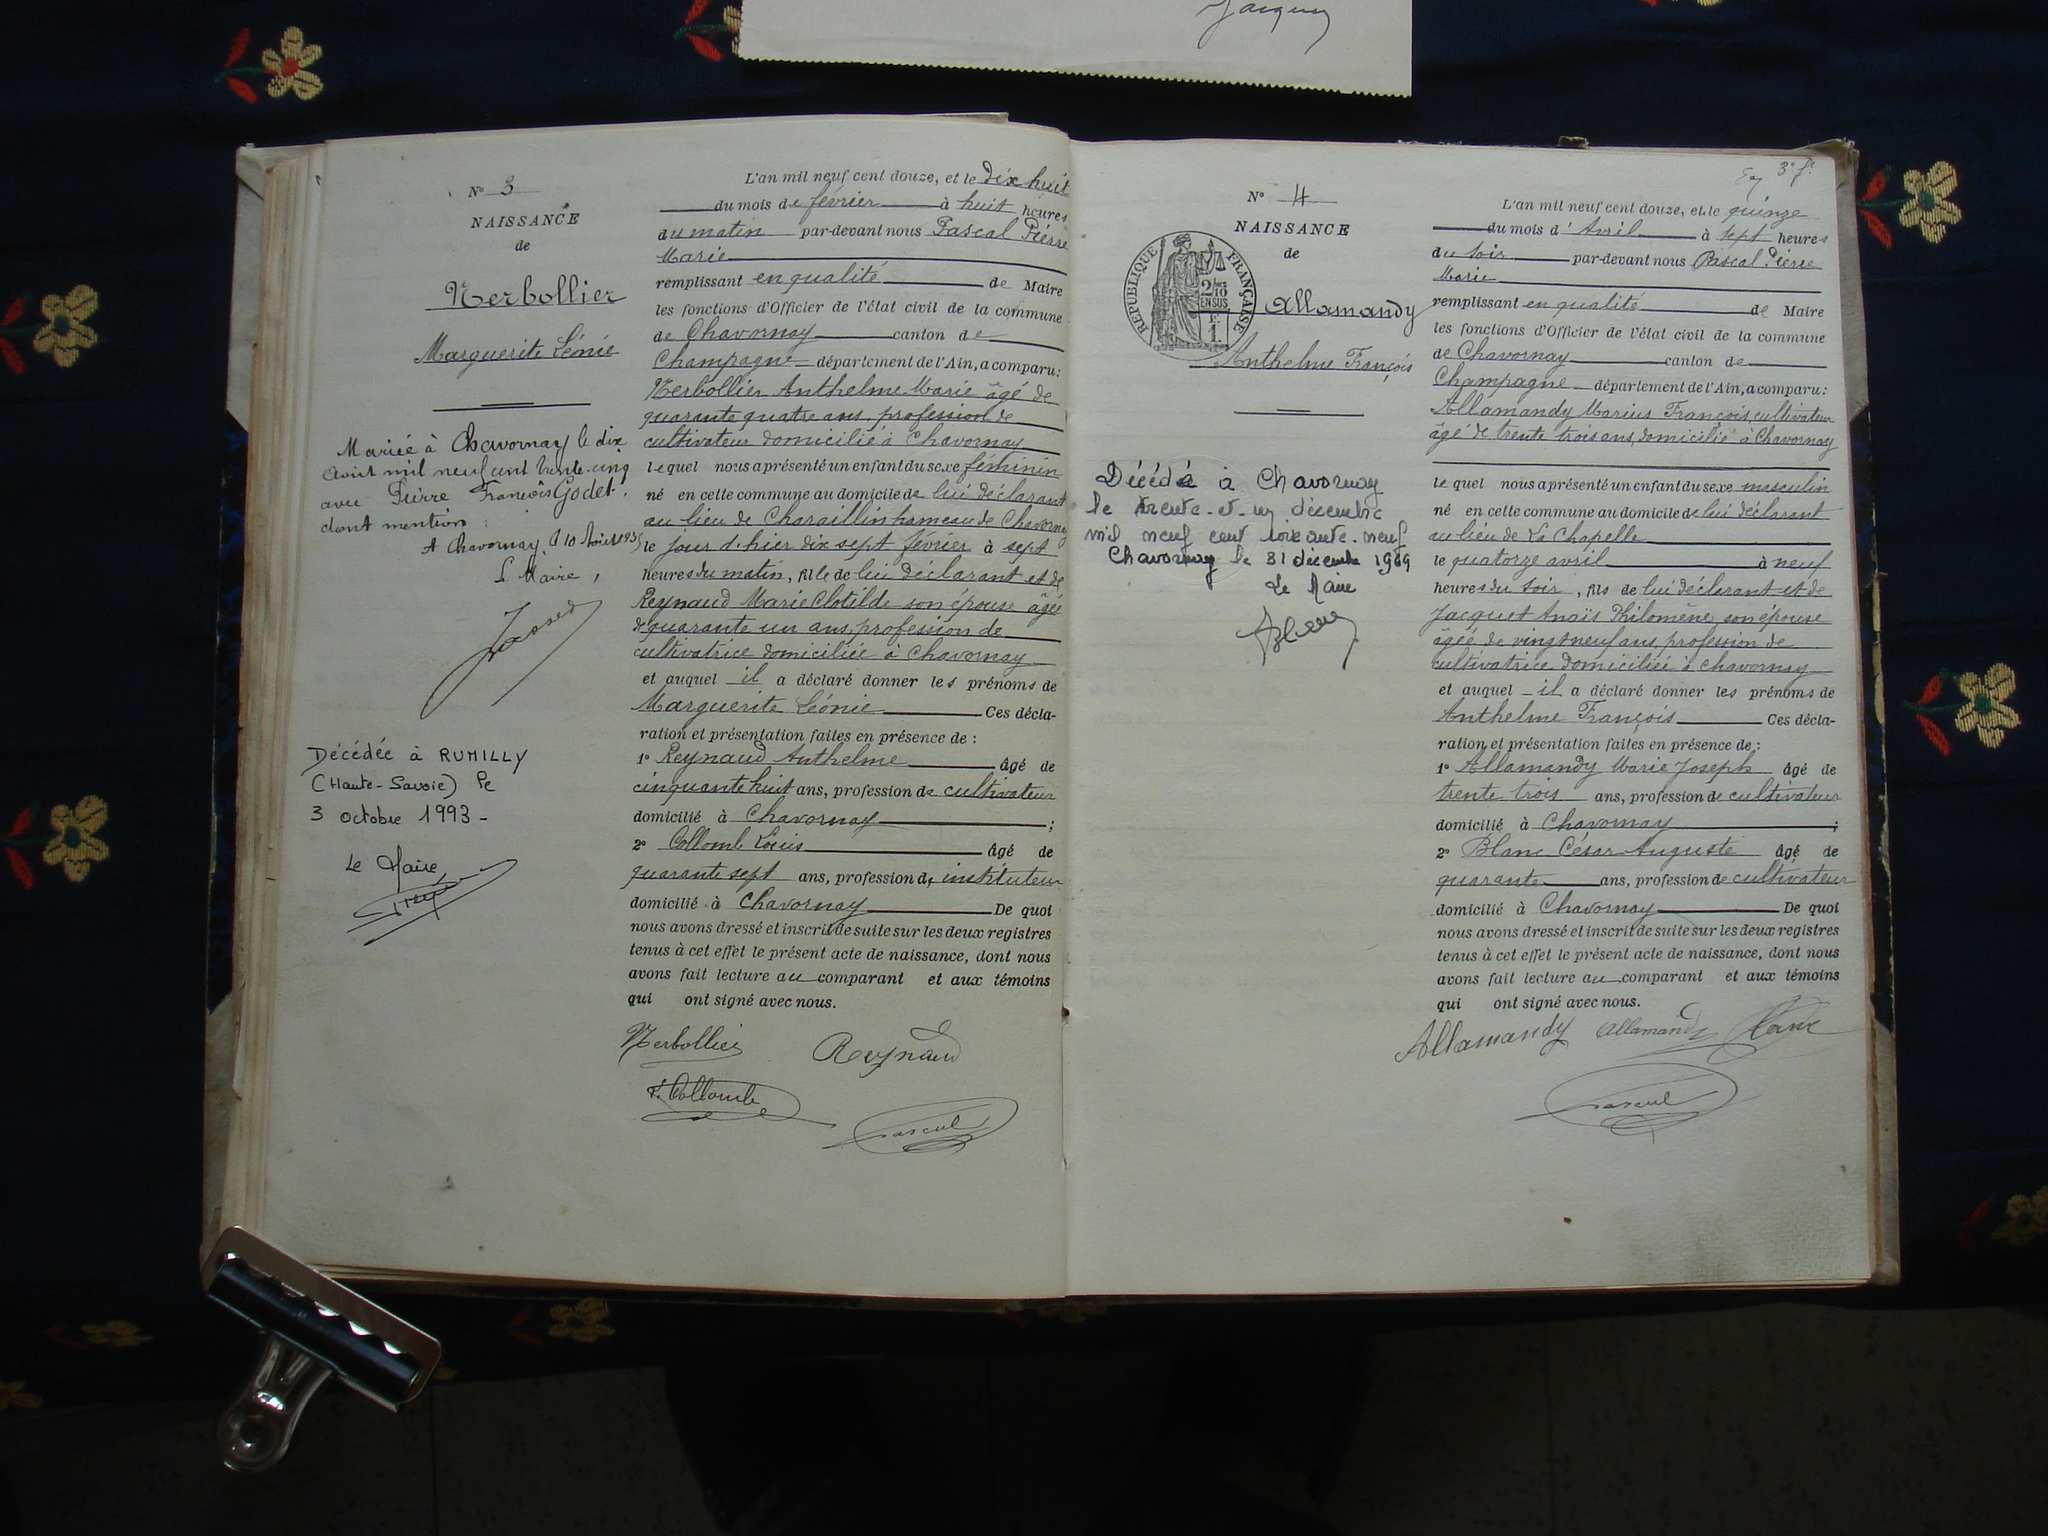 Jacques
N° 3
NAISSANCE
de
Nerbollier
Marguerite Léonie
Mariée à Chavornay le dix
août mil neuf cent trente-cinq
avec Pierre François Godet.
dont mention :
A Chavornay, le 10 Août 1935
Le Maire,
Décédée à RUMILLY
(Haute-Savoie) le
3 octobre 1993 -
Le Maire,
L'an mil neuf cent douze, et le dix huit
du mois de février à huit heures
du matin par-devant nous Pascal Pierre
Marie
remplissant en qualité de Maire
les fonctions d'Officier de l'état civil de la commune
de Chavornay canton de
Champagne département de l'Ain, a comparu :
Nerbollier Anthelme Marie âgé de
quarante quatre ans, profession de
cultivateur domicilié à Chavornay
lequel nous a présenté un enfant du sexe féminin
né en cette commune au domicile de lui déclarant
au lieu de Charaillin hameau de Chavornay
le jour d'hier dix sept février à sept
heures du matin, fille de lui déclarant et de
Reynaud Marie Clotilde son épouse âgée
de quarante un ans, profession de
cultivatrice domiciliée à Chavornay
et auquel il a déclaré donner les prénoms de
Marguerite Léonie Ces décla-
ration et présentation faites en présence de :
1° Reynaud Anthelme âgé de
cinquante huit ans, profession de cultivateur
domicilié à Chavornay ;
2° Collomb Louis âgé de
quarante sept ans, profession de instituteur
domicilié à Chavornay De quoi
nous avons dressé et inscrit de suite sur les deux registres
tenus à cet effet le présent acte de naissance, dont nous
avons fait lecture au comparant et aux témoins
qui ont signé avec nous.
Nerbollier Reynaud
L. Collomb Pascal
3e f.
N° 4
NAISSANCE
de
RÉPUBLIQUE FRANÇAISE
2/10
EN SUS
1 F.
Allamandy
Anthelme François
Décédé à Chavornay
le trente-et-un décembre
mil neuf cent soixante-neuf
Chavornay le 31 décembre 1969
Le Maire
L'an mil neuf cent douze, et le quinze
du mois d' Avril à sept heures
du soir par-devant nous Pascal Pierre
Marie
remplissant en qualité de Maire
les fonctions d'Officier de l'état civil de la commune
de Chavornay canton de
Champagne département de l'Ain, a comparu :
Allamandy Marius François, cultivateur
âgé de trente trois ans, domicilié à Chavornay
lequel nous a présenté un enfant du sexe masculin
né en cette commune au domicile de lui déclarant
au lieu de La Chapelle
le quatorze avril à neuf
heures du soir, fils de lui déclarant et de
Jacquet Anaïs Philomène, son épouse
âgée de vingt neuf ans, profession de
cultivatrice domiciliée à Chavornay
et auquel il a déclaré donner les prénoms de
Anthelme François Ces décla-
ration et présentation faites en présence de :
1° Allamandy Marie Joseph âgé de
trente trois ans, profession de cultivateur
domicilié à Chavornay ;
2° Blanc César Auguste âgé de
quarante ans, profession de cultivateur
domicilié à Chavornay De quoi
nous avons dressé et inscrit de suite sur les deux registres
tenus à cet effet le présent acte de naissance, dont nous
avons fait lecture au comparant et aux témoins
qui ont signé avec nous.
Allamandy Allamandy Blanc
Pascal